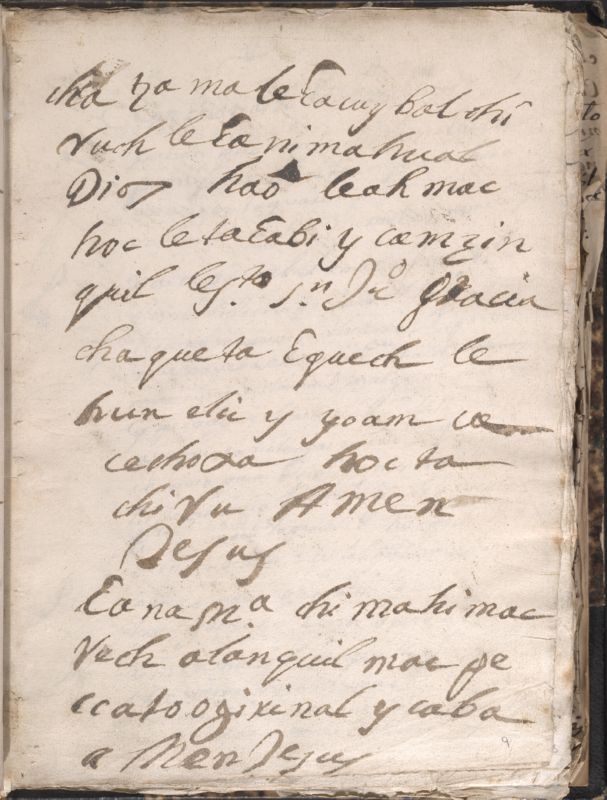 cha ɀa ma le Ɛacuy bal chi
vach le Ɛa nimahual
Dios hao le ah mac
hoc le ta Ɛabi y cam ɀin
quil le s.to s.n Ju.o gracia
cha que ta Ɛquech le
hun elic y yoam ca
cechoxa hoc ta
chi vu Amen
Jesus
Ɛa na m.a chi mahi mac
vech alanquil mac pe
ccato ogixinal y caba
a Men Jesus
9